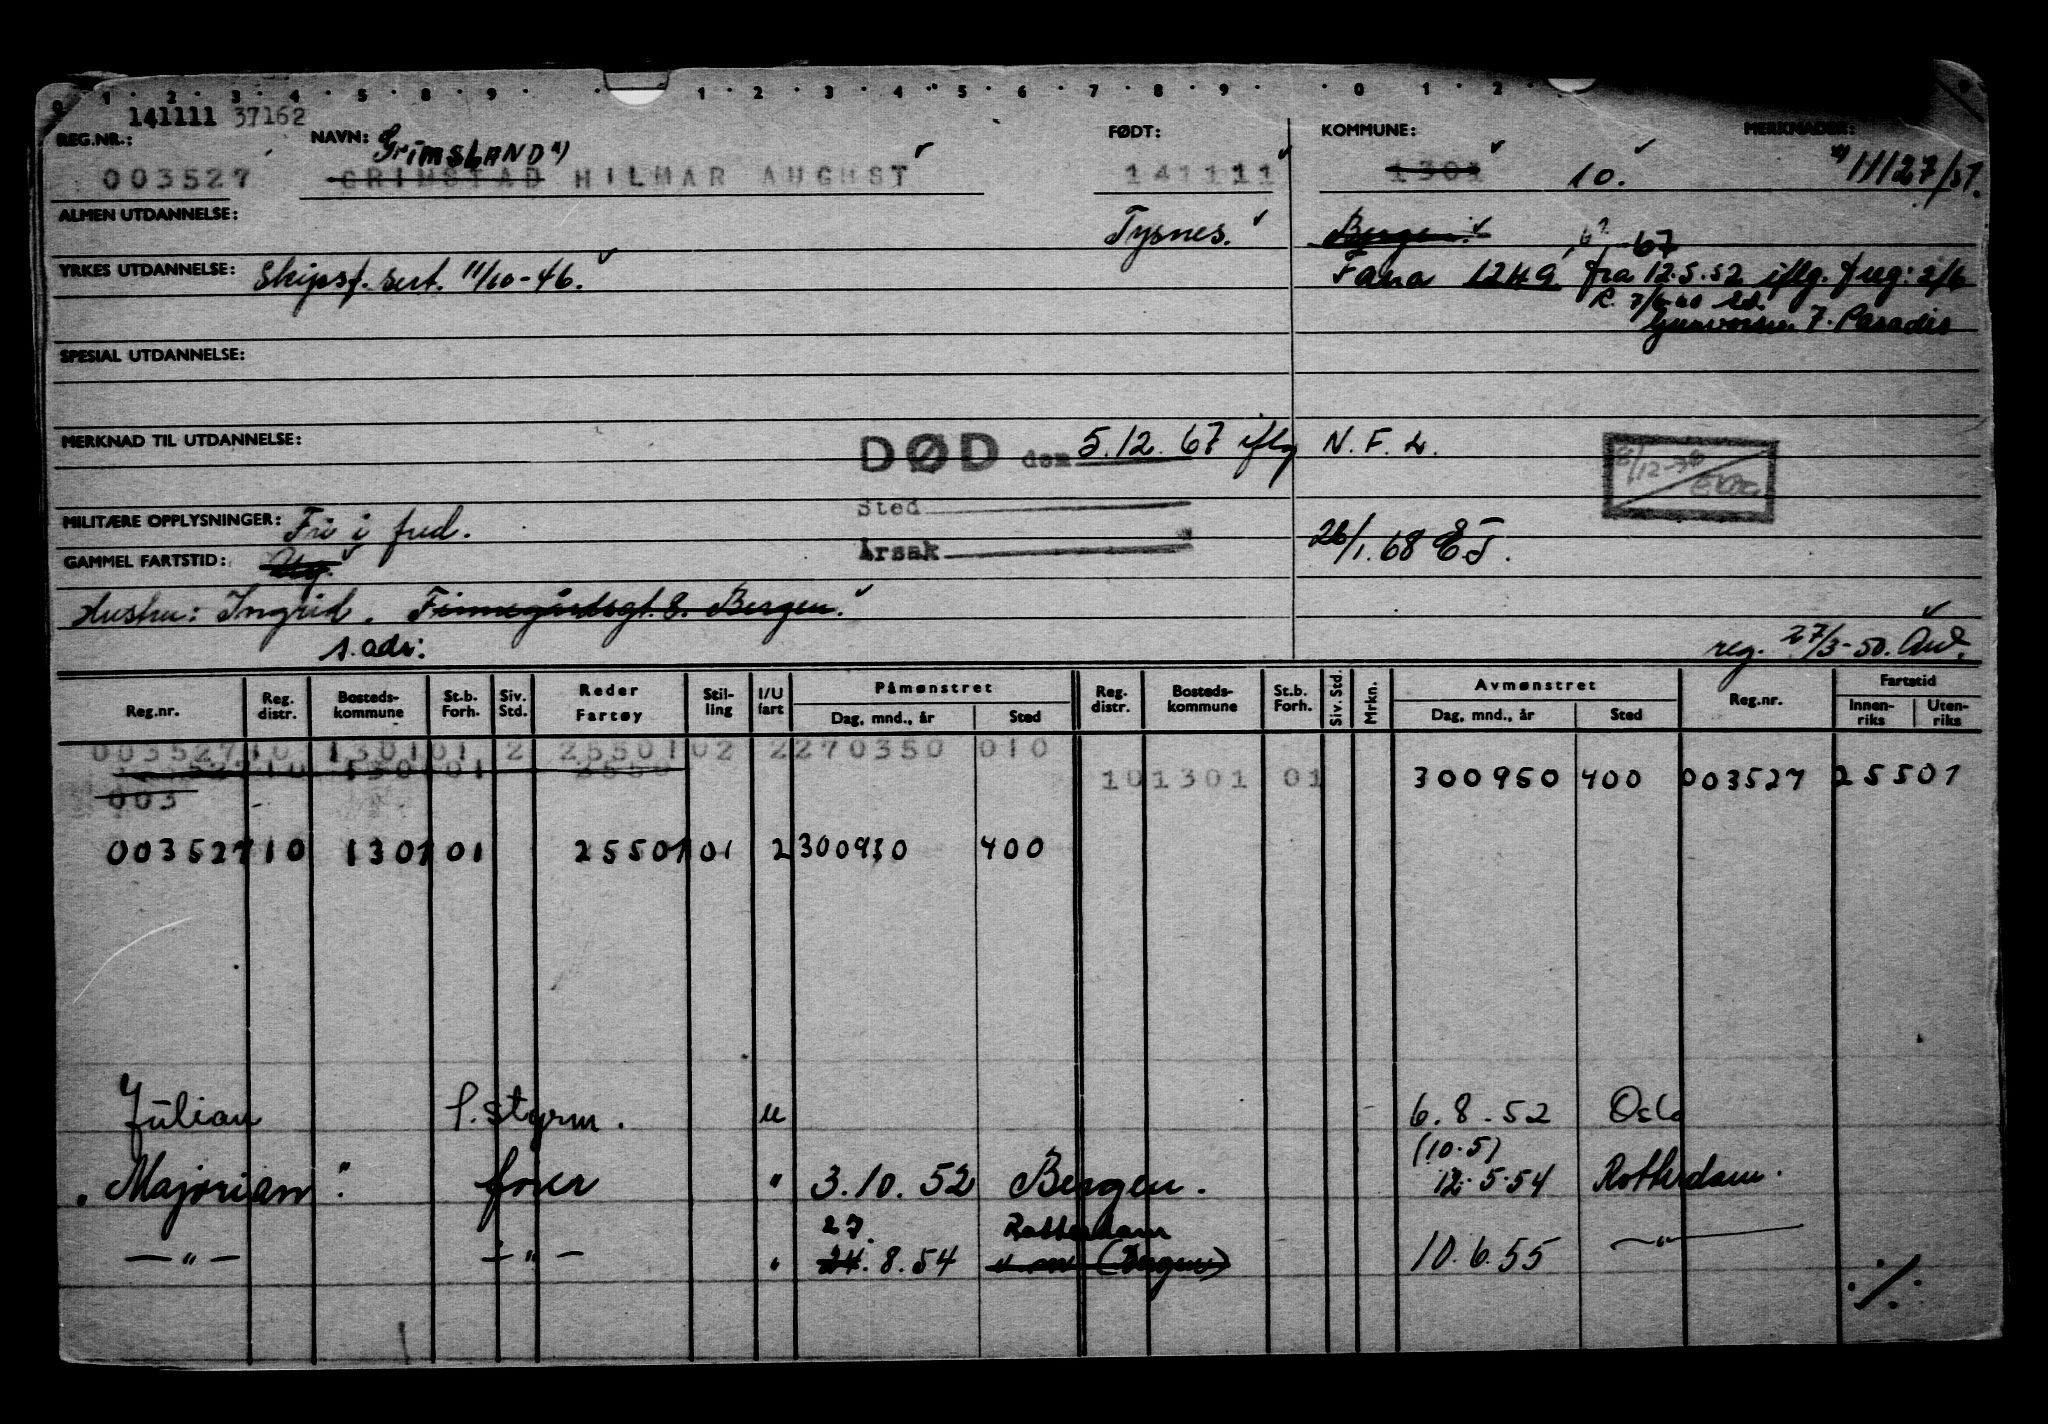 0 1 2 3 4 5 8 9 1 2 3 4 5 6 7 8 9 0 1 2
141111 37162
REG.NR.: NAVN: GrimsLAND x) FØDT: KOMMUNE: MERKNADER:
003527 GRIMSTAD HILMAR AUGUST 141111 1301 10. x) 11127/51.
ALMEN UTDANNELSE: Tysnes. Bergen.
67
YRKES UTDANNELSE: Skipsf. sert. 11/10-46. Fana 1249 fra 12.5.52 iflg. freg: 2/6
7. Paradis
SPESIAL UTDANNELSE:
MERKNAD TIL UTDANNELSE: DØD den 5.12.67 iflg N.F.L.
Sted
MILITÆRE OPPLYSNINGER: Fri i fred.
Årsak 26/1.68 EJ.
GAMMEL FARTSTID:
Hustru: Ingrid. Finnegårdsgt. 8. Bergen.
s. adr: reg. 27/3-50.
Reg.nr. Reg. distr. Bosteds- kommune St.b. Forh. Siv. Std. Reder Fartøy Stil- ling I/U fart Påmønstret Dag, mnd., år Sted Reg. distr. Bosteds- kommune St.b. Forh. Siv. Std. Mrkn. Avmønstret Dag, mnd., år Sted Reg.nr. Fartstid Innen- riks Uten- riks
003527 10 1301 01 2 25501 02 2 270350 010
10 1301 01 300950 400 003527 25501
003
003527 10 1301 01 25501 01 2 300950 400
Julian 1. styrm. u 6.8.52 Oslo
(10.5)
"Majorian". fører " 3.10.52 Bergen. 12.5.54 Rotterdam.
27. Rotterdam
— " — — " — " 24.8.54 (Bergen) 10.6.55 — " —
./.